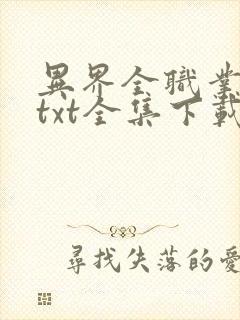 異界全職業
txt全集下載
尋找失落的愛